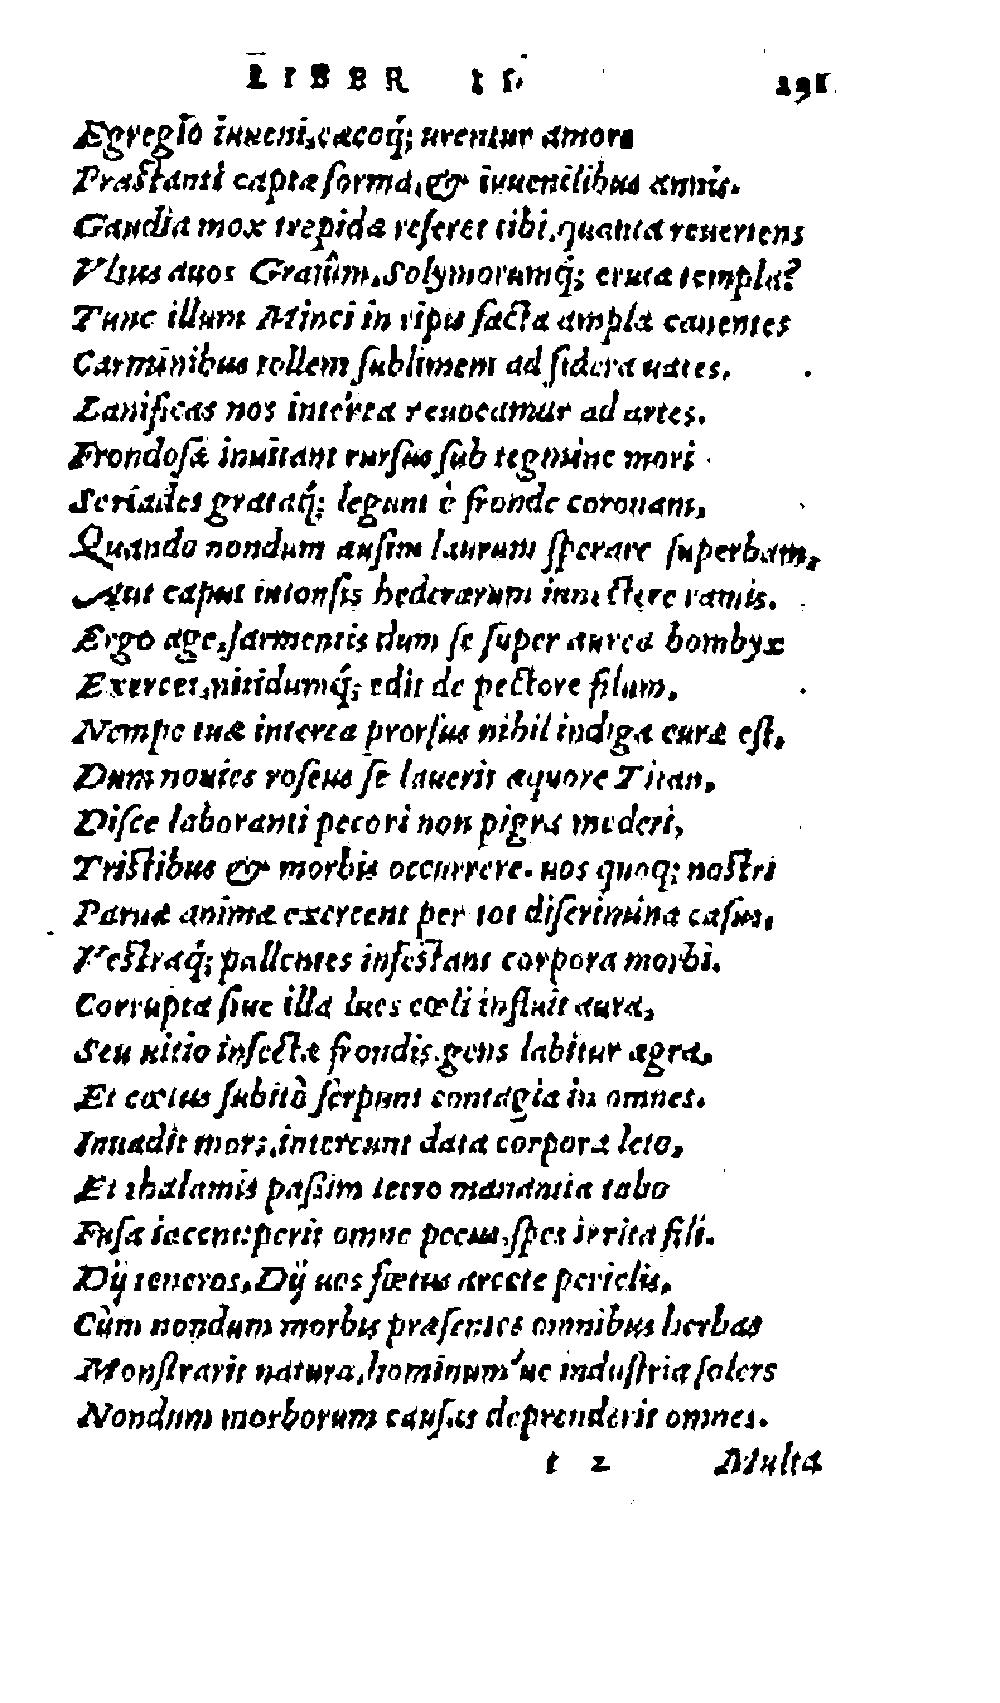 LIBER II. 291
Egregio iuueni, cæcoq́; urentur amore
Præstanti captæ forma, & iuuenilibus annis.
Gaudia mox trepidæ referet tibi. quanta reuertens
Visus auos Graiûm, Solymorumq́; eruta templa?
Tunc illum Minci in ripis facta ampla canentes
Carminibus tollent sublimem ad sidera uates.
Lanificas nos interea reuocamur ad artes.
Frondosæ inuitant rursus sub tegmine mori
Seriades grataq́; legunt è fronde coronam,
Quando nondum ausim laurum sperare superbam,
Aut caput intonsis hederarum innectere ramis.
Ergo age, sarmentis dum se super aurea bombyx
Exercet, nitidumq́; edit de pectore filum,
Nempe tuæ interea prorsus nihil indiga curæ est,
Dum nouies roseus se lauerit æquore Titan,
Disce laboranti pecori non pigra mederi,
Tristibus & morbis occurrere. uos quoq; nostri
Paruæ animæ exercent per tot discrimina casus,
Vestraq́; pallentes infestant corpora morbi.
Corrupta siue illa lues cœli influit aura,
Seu uitio infectæ frondis. gens labitur ægra,
Et cœtus subitò serpunt contagia in omnes.
Inuadit mors, intereunt data corpora leto,
Et thalamis paßim tetro manantia tabo
Fusa iacent: perit omne pecus, spes irrita fili.
Dij teneros, Dij uos fœtus arcete periclis,
Cùm nondum morbis præsentes omnibus herbas
Monstrarit natura, hominum'ue industria solers
Nondum morborum causas deprenderit omnes.
t 2 Multa